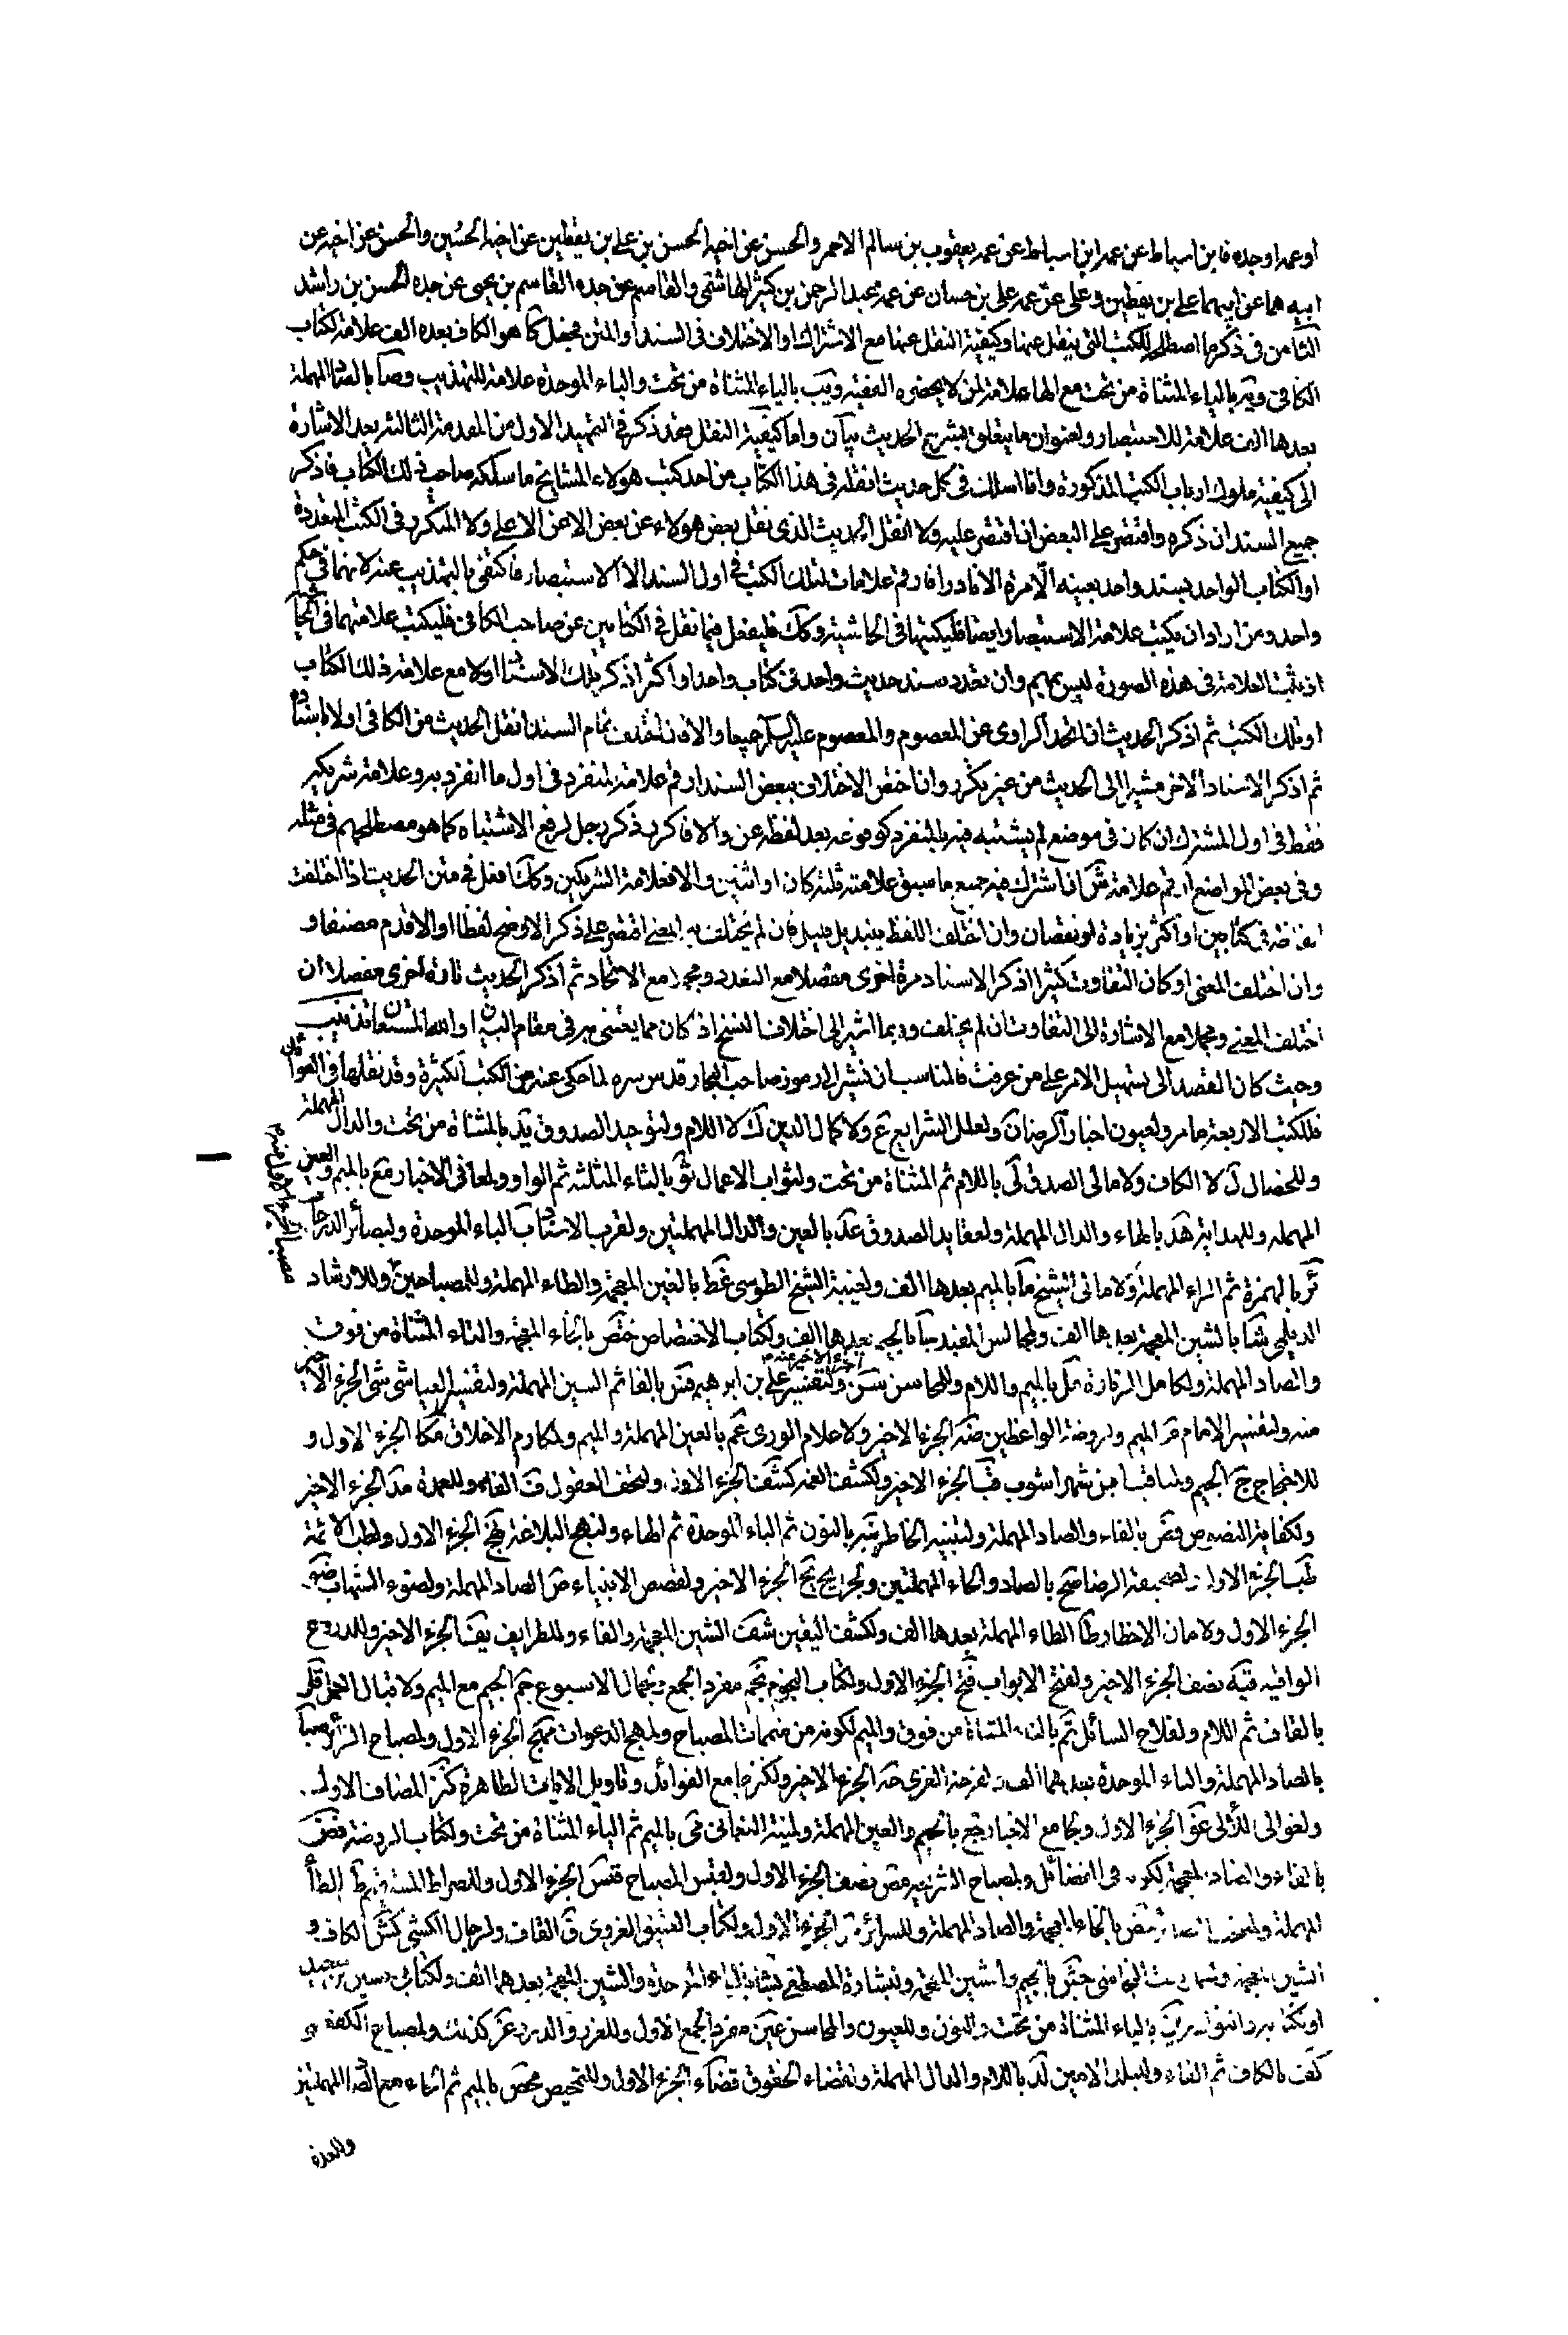 او عمه او جده فابن اسباط عن عمه ابن اسباط عن عمه يعقوب بن سالم الاحمر والحسن عن اخيه الحسن بن علي بن يقطين عن اخيه الحسين والحسن عن اخيه عن
ابيه هما عن ابيهما علي بن يقطين وعلي عن عمه علي بن حسان عن عمه عبد الرحمن بن كثير الهاشمي والقاسم عن جده القاسم بن يحيى عن جده الحسن بن راشد
الثامن في ذكر ما اصطلح للكتب التي ينقل عنها وكيفية النقل عنها مع الاشتراك او الاختلاف في السند او المتن فجعل كا هو الكاف بعده الف علامة لكتاب
الكافي ويه بالياء المثناة من تحت مع الهاء علامة لمن لا يحضره الفقيه ويب بالياء المثناة من تحت والباء الموحدة علامة للتهذيب وصا بالصاد المهملة
بعدها الف علامة للاستبصار ولعنوان ما يتعلق بشرح الحديث بيان واما كيفية النقل فقد ذكر في التمهيد الاول من المقدمة الثالثة بعد الاشارة
الى كيفية سلوك ارباب الكتب المذكورة وانا اسلك في كل حديث انقله في هذا الكتاب من احد كتب هولاء المشايخ ما سلكه صاحب ذلك الكتاب فاذكر
جميع السند ان ذكره واقتصر على البعض ان اقتصر عليه ولا انقل الحديث الذي نقل بعض هولاء عن بعض الا عن الاعلى ولا المتكرر في الكتب المتعددة
او الكتاب الواحد بسند واحد بعينه الا مرة الا نادرا فارقم علامات لتلك الكتب في اول السند الا الاستبصار فاكتفي بالتهذيب عنه لانهما في حكم
واحد ومن اراد ان يكتب علامة الاستبصار ايضا فليكتبها في الحاشية وكك فليفعل فيما نقل في الكتابين عن صاحب الكافي فليكتب علامتهما في الحا
اذ ثبت العلامة في هذه الصورة ليس بمهم وان تعدد سند حديث واحد في كتاب واحد او اكثر اذكر تلك الاسناد اولا مع علامة ذلك الكتاب
او تلك الكتب ثم اذكر الحديث ان اتحد الراوي عن المعصوم والمعصوم عليه السلم جميعا والا فان اختلف تمام السند انقل الحديث من الكافي اولا باسناده
ثم اذكر الاسناد الاخر مشيرا الى الحديث من غير تكرير وان اختص الاختلاف ببعض السند ارقم علامة المنفرد في اول ما انفرد به وعلامة شريكه
فقط في اول المشترك ان كان في موضع لم يشتبه فيه بالمنفرد كوقوعه بعد لفظة عن والا فاكرر ذكر رجل لرفع الاشتباه كما هو مصطلحهم في مثله
وفي بعض المواضع ارقم علامة ش اذا اشترك فيه جميع ما سبق علامته ثلثة كان او اثنين والا فعلامة الشريكين وكك افعل في متن الحديث اذا اختلفت
الفاظه في كتابين او اكثر بزيادة او نقصان وان اختلف اللفظ بتبديل قليل فان لم يختلف به المعنى اقتصر على ذكر الاوضح لفظا او الاقدم مصنفا و
وان اختلف المعنى او كان التفاوت كثيرا اذكر الاسناد مرة اخرى مفصلا مع التعدد ومجملا مع الاتحاد ثم اذكر الحديث تارة اخرى مفصلا ان
اختلف المعنى ومجملا مع الاشارة الى التفاوت ان لم يختلف وربما اشير الى اختلاف النسخ اذا كان مما يعتنى به في مقام البيان او والله المستعان تذنيب
وحيث كان القصد الى تسهيل الامر على من عرفت فالمناسب ان نشير الى رموز صاحب البحار قدس سره لما حكى عنه من الكتب الكثيرة وقد نقلها في العنوان
فللكتب الاربعة ما مر ولعيون اخبار الرضا ن ولعلل الشرايع ع ولاكمال الدين ك لا اللام ولتوحيد الصدوق يد بالمثناة من تحت والدال المهملة
وللخصال ل لا الكاف ولامالي الصدوق لي باللام ثم المثناة من تحت ولثواب الاعمال ثو بالثاء المثلثة ثم الواو ولمعاني الاخبار مع بالميم والعين
المهملة وللهداية هد بالهاء والدال المهملة ولعقايد الصدوق عد بالعين والدال المهملتين ولقرب الاسناد ب الباء الموحدة ولبصائر الدرجات
ئر بالهمزة ثم الراء المهملة ولامالي الشيخ ما بالميم بعدها الف ولغيبة الشيخ الطوسي غط بالغين المعجمة والطاء المهملة وللمصباحين وللارشاد
الديلمي شا بالشين المعجمة بعدها الف ولمجالس المفيد جا بالجيم بعدها الف ولكتاب الاختصاص ختص بالخاء المعجمة والتاء المثناة من فوق
والصاد المهملة ولكامل الزيارة مل بالميم واللام وللمحاسن سن ولتفسير علي بن ابراهيم فس بالفا ثم السين المهملة ولتفسير العياشي شي الجزء الاخير
منه ولتفسير الامام م الميم ولروضة الواعظين ضه الجزء الاخير ولاعلام الورى عم بالعين المهملة والميم ولمكارم الاخلاق مكا الجزء الاول و
للاحتجاج ج الجيم ولمناقب ابن شهراشوب قب الجزء الاخير ولكشف الغمة كشف الجزء الاول ولتحف العقول ف الفاء وللعمدة مد الجزء الاخير
ولكفاية النصوص نص بالفاء والصاد المهملة ولتنبيه الخاطر نبه بالنون ثم الباء الموحدة ثم الهاء ولنهج البلاغة نهج الجزء الاول ولطب الائمة
طب الجزء الاول ولصحيفة الرضا صح بالصاد والحاء المهملتين ولخرايج يج الجزء الاخير ولقصص الانبياء ص الصاد المهملة ولضوء الشهاب ضوء
الجزء الاول ولامان الاخطار طا الطاء المهملة بعدها الف ولكشف اليقين شف الشين المعجمة والفاء وللطرايف يف الجزء الاخير وللدروع
الواقيه قيه نصف الجزء الاخير ولفتح الابواب فتح الجزء الاول ولكتاب النجوم نجم مفرد الجمع ولجمال الاسبوع جم الجيم مع الميم ولاقبال الاعمال قل
بالقاف ثم اللام ولفلاح السائل تم بالتاء المثناة من فوق والميم لكونه من متممات المصباح ولمهج الدعوات مهج الجزء الاول ولمصباح الزائر صبا
بالصاد المهملة والباء الموحدة بعدهما الف ولفرحة الغري حه الجزء الاخير ولكنز جامع الفوائد وتاويل الايات الطاهرة كنز المضاف الاول
ولغوالي اللألي غو الجزء الاول ولجامع الاخبار جع بالجيم والعين المهملة ولغيبة النعماني ني بالميم ثم الياء المثناة من تحت ولكتاب الروضة فض
بالفاء والضاد المعجمة لكونه في الفضائل ولمصباح الشريعة مص نصف الجزء الاول ولقبس المصباح قبس الجزء الاول وللصراط المستقيم ط الطاء
المهملة ولمنتخب البصائر خص بالخاء المعجمة والصاد المهملة وللسرائر سر الجزء الاول ولكتاب العتيق الغروي ق القاف ولرجال الكشي كش الكاف و
الشين المعجمة ولفهرست النجاشي جش بالجيم والشين المعجمة ولبشارة المصطفى بشا بالباء الموحدة والشين المعجمة بعدهما الف ولكتابي حسين بن سعيد
او لكتابه والنوادر ين بالياء المثناة من تحت والنون وللعيون والمحاسن عين مفرد الجمع الاول وللغرر والدرر غر كذلك ولمصباح الكفعمي
كف بالكاف ثم الفاء وللبلد الامين لد باللام والدال المهملة ولقضاء الحقوق قضاء الجزء الاول وللتمحيص محص بالميم ثم الحاء مع الصاد المهملتين
والعدة